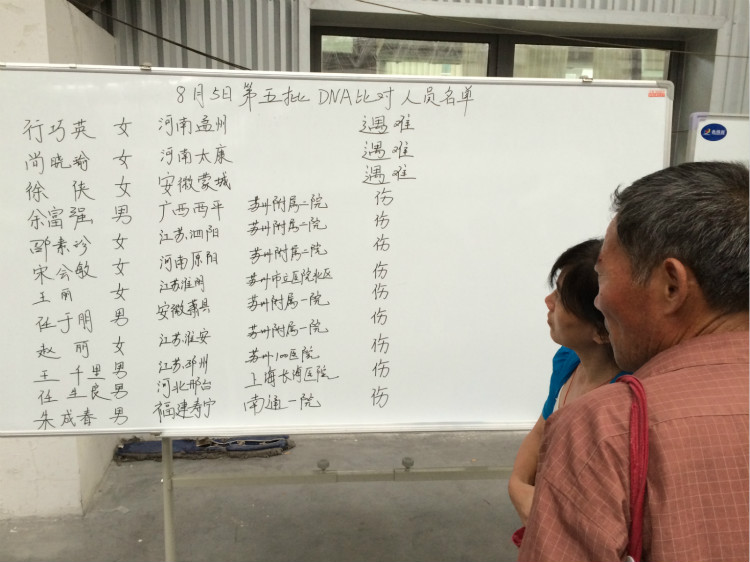 8月5日第五批DNA比对人员名单
行巧英 女 河南孟州 遇难
尚晓瑜 女 河南太康 遇难
徐侠 女 安徽蒙城 遇难
余富强 男 广西西平 苏州附属二院 伤
邵素珍 女 江苏泗阳 苏州附属二院 伤
宋会敏 女 河南原阳 苏州附属二院 伤
王丽 女 江苏淮阴 苏州市立医院北区 伤
任于朋 男 安徽萧县 苏州附属一院 伤
赵丽 女 江苏淮安 苏州附属一院 伤
王千里 男 江苏邳州 苏州100医院 伤
任生良 男 河北邢台 上海长海医院 伤
朱成春 男 福建寿宁 南通一院 伤